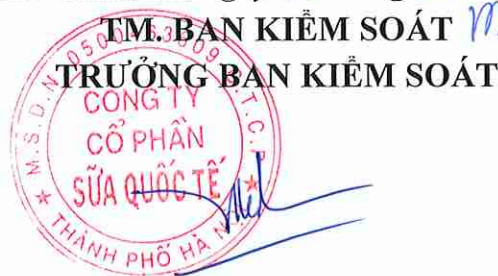 TM. BAN KIỂM SOÁT
TRƯỞNG BAN KIỂM SOÁT
CÔNG TY
CỔ PHẦN
SỮA QUỐC TẾ
THÀNH PHỐ HÀ